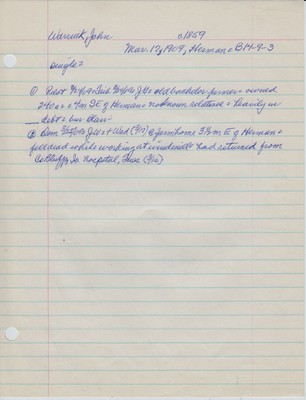 Warnick, John c1859
Mar. 17, 1909, Herman = B14-9-3
Single =
① Robt 3/26/09 = J.U. = old bachelor farmer = owned
240 a = 4 m SE of Herman = no known relatives = heavily in
debt =
② Dem = Wed (3/17) @ farm home 3½ m E of Herman =
fell dead while working at windmill = had returned from
Co Bluffs, Ia. hospital, Tues (3/16)